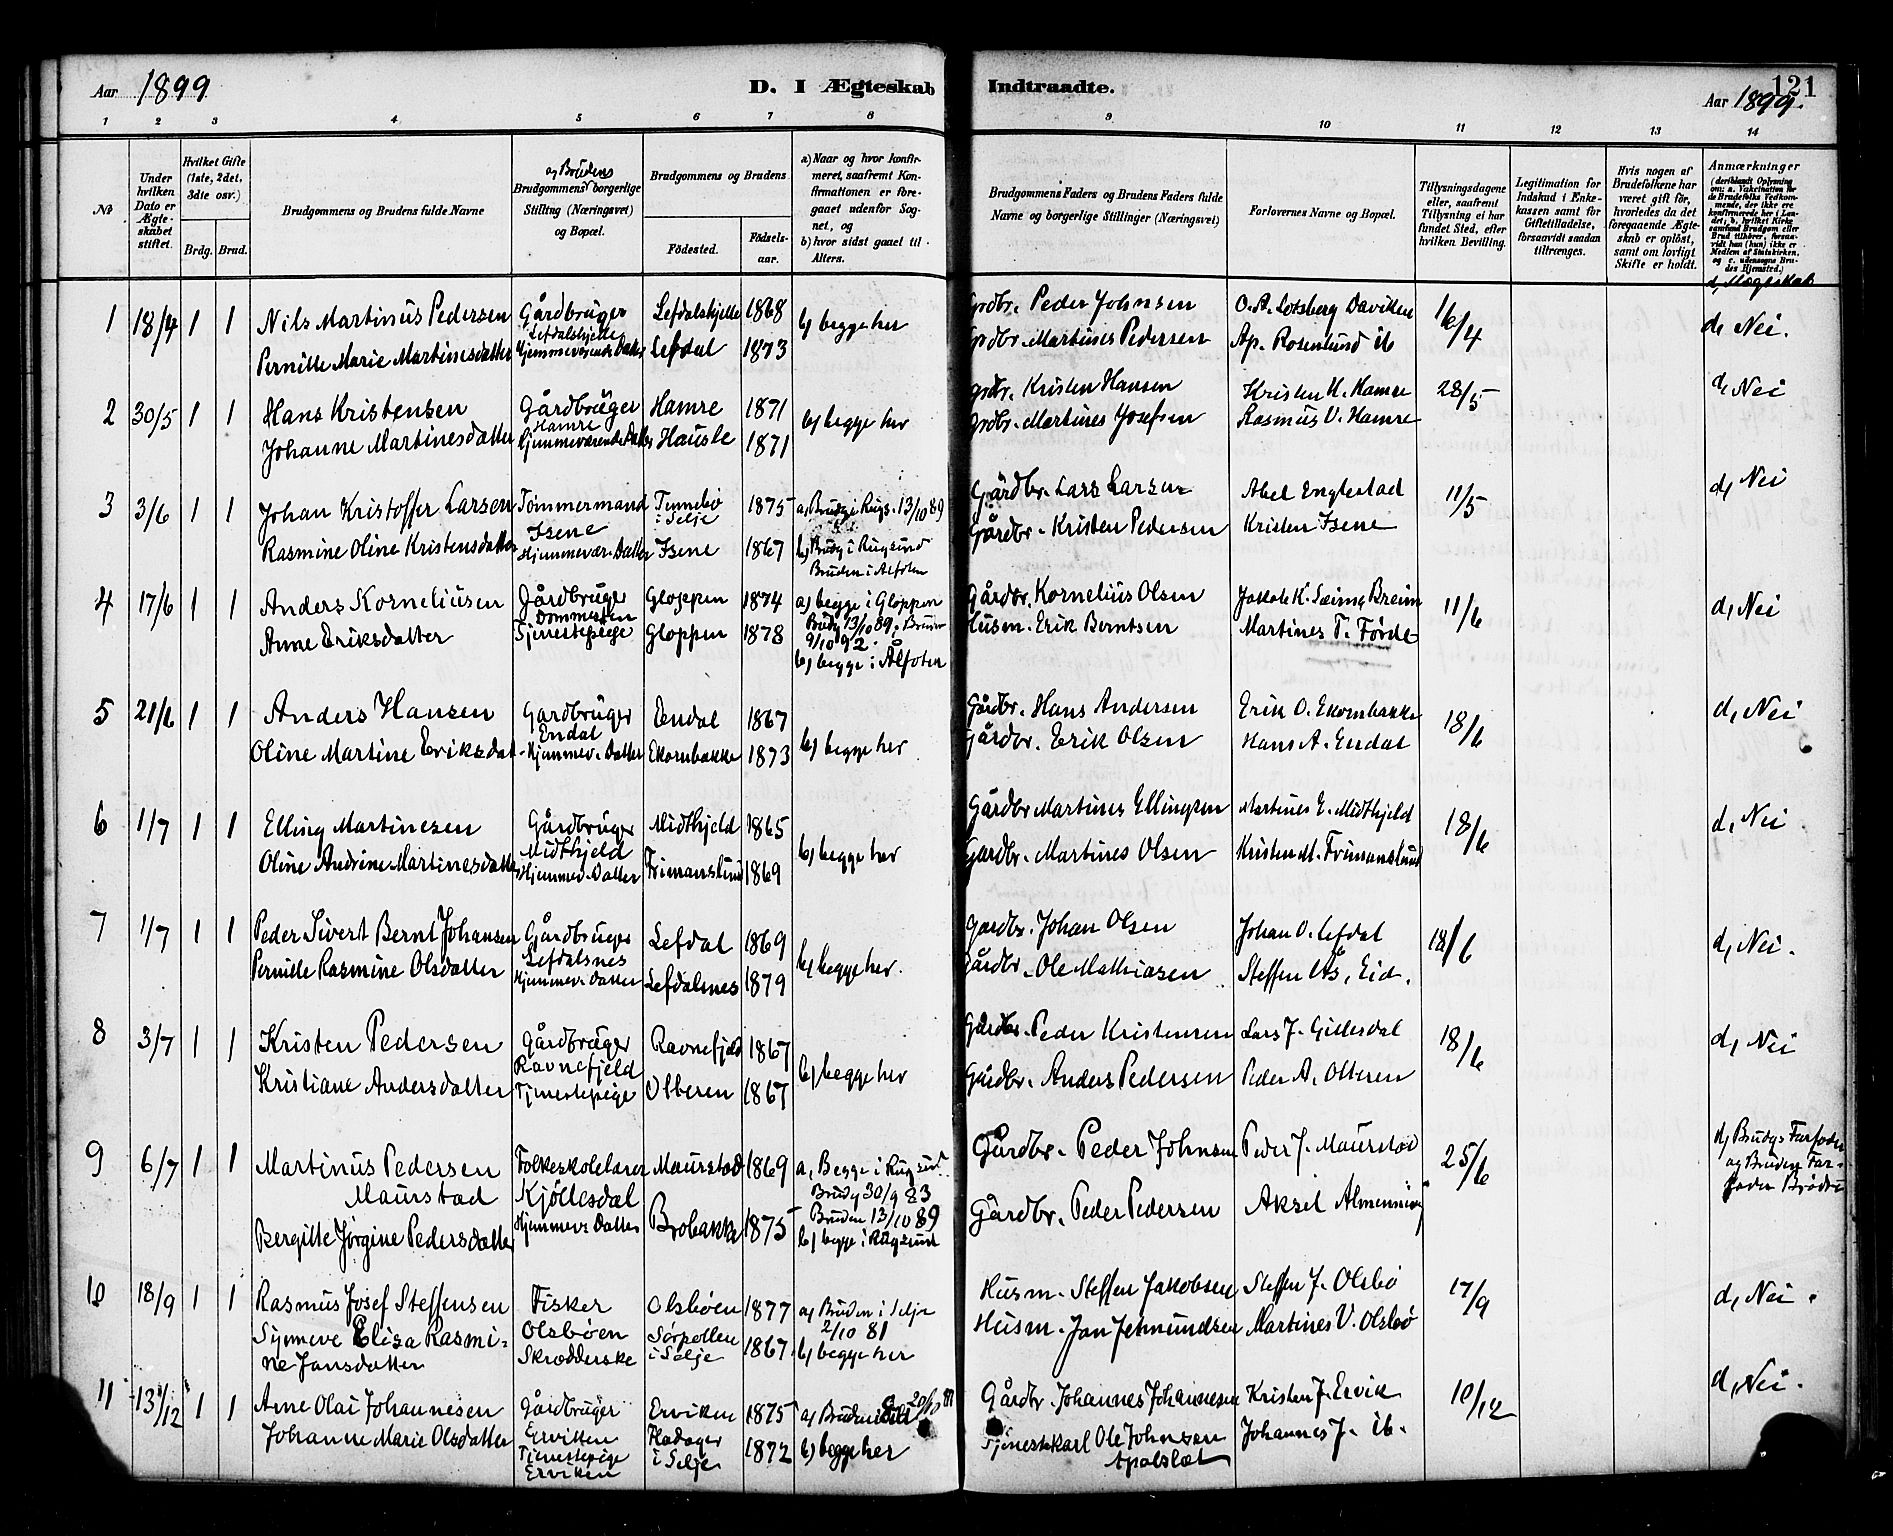 Aar 1899 D. I Ægteskab Indtraadte. Aar 1899. 121
1 2 3 4 5 6 7 8 9 10 11 12 13 14
№
Under hvilken Dato er Ægteskabet stiftet.
Hvilket Gifte (1ste, 2det, 3die osv.)
Brdg. Brud.
Brudgommens og Brudens fulde Navne
og Brudens
Brudgommens borgerlige Stilling (Næringsvei) og Bopæl.
Brudgommens og Brudens
Fødested.
Fødselsaar.
a) Naar og hvor konfirmeret, saafremt Konfirmationen er foregaaet udenfor Sognet, og
b) hvor sidst gaaet til Alters.
Brudgommens Faders og Brudens Faders fulde Navne og borgerlige Stillinger (Næringsvei)
Forlovernes Navne og Bopæl.
Tillysningsdagene eller, saafremt Tillysning ei har fundet Sted, efter hvilken Bevilling.
Legitimation for Indskud i Enkekassen samt for Giftetilladelse, forsaavidt saadan tiltrænges.
Hvis nogen af Brudefolkene har været gift før, hvorledes da det foregaaende Ægteskab er opløst, samt om lovligt Skifte er holdt.
Anmærkninger
(deriblandt Oplysning om: a. Vakcination for de Brudefolks Vedkommende, der ikke ere konfirmerede her i Landet; b. hvilket Kirkesamfund Brudgom eller Brud tilhører, forsaavidt han (hun) ikke er Medlem af Statskirken, og c. udensogns Brudes Hjemsted.)
1 18/4 1 1 Nils Martinus Pedersen Gårdbruger Lefdalshjelle 1868 b) begge her Grdbr. Peder Johnsen O. A. Lotsberg Daviken 16/4 d, Nei.
Lefdalshjelle
Pernille Marie Martinesdatter Hjemmeværende Datter Lefdal 1873 Grdbr. Martines Pedersen Ap. Rosenlund ib
2 30/5 1 1 Hans Kristensen Gårdbruger Hamre 1871 b) begge her Grdbr. Kristen Hansen Kristen H. Hamre 28/5 d, Nei
Hamre
Johanne Martinesdatter Hjemmeværende Datter Hausle 1871 Grdbr. Martines Josefsen Rasmus O. Hamre
3 3/6 1 1 Johan Kristoffer Larsen Tømmermand Tunnebø i Selje 1875 a, Brudg i Rugs. 13/10 89 Gårdbr. Lars Larsen Abel Englestad 11/5 d, Nei
Isene
Rasmine Oline Kristensdatter Hjemmevær. Datter Isene 1867 b) Brudg i Rugsund Gårdbr. Kristen Pedersen Kristen Isene
Bruden i Alfoten
4 17/6 1 1 Anders Korneliusen Gårdbruger Gloppen 1874 a) begge i Gloppen Gårdbr. Kornelius Olsen Jakob K. Seime Breim 11/6 d, Nei
Dommesten Brudg 13/10 89, Bruden
Anne Eriksdatter Tjenestepige Gloppen 1878 9/10 92 Husm. Erik Berntsen Martines T. Førde
b) begge i Ålfoten
5 21/6 1 1 Anders Hansen Gardbruger Endal 1867 b) begge her Gårdbr. Hans Andersen Erik O. Ekornbakke 18/6 d, Nei
Endal
Oline Martine Eriksdat- Hjemmev. Datter Ekornbakke 1873 Gårdbr. Erik Olsen Hans A. Endal
6 1/7 1 1 Elling Martinesen Gårdbruger Midthjeld 1865 b) begge her Gårdbr Martines Ellingsen Martines E. Midthjeld 18/6 d, Nei
Midthjeld
Oline Andrine Martinesdatter Hjemmev. Datter Frimanslund 1869 Gardbr. Martines Olsen Kristen M. Frimanslund
7 1/7 1 1 Peder Sivert Bernt Johansen Gårdbruger Lefdal 1869 b) begge her. Gardbr. Johan Olsen Johan O. Lefdal 18/6 d, Nei.
Lefdalsnes
Pernille Rasmine Olsdatter Hjemmev. Datter Lefdalsnes 1879 Gårdbr. Ole Mathiasen Steffen Ås, Eid.
8 3/7 1 1 Kristen Pedersen Gårdbruger Ravnefjeld 1867 b) begge her Gårdbr. Peder Kristensen Lars J. Gillesdal 18/6 d, Nei
Ravnefjeld
Kristiane Andersdatter Tjenestepige Otteren 1867 Gårdbr. Anders Pedersen Peder A. Otteren
9 6/7 1 1 Martinus Pedersen Folkeskolelærer Maurstad 1869 a, Begge i Rugsund Gårdbr. Peder Johnsen Peder J. Maurstad 25/6 d, Brudgs Farfader
Maurstad Kjöllesdal Brudg 30/9 83 og Bruden Far-
Bruden 13/10 89 fader Brödre
Bergitte Jørgine Pedersdatter Hjemmev. Datter Brobakke 1875 b) begge i Rugsund Gårdbr. Peder Pedersen Aksel Almenning
10 18/9 1 1 Rasmus Josef Steffensen Fisker Olsbøen 1877 a) Bruden i Selje Husm. Steffen Jakobsen Steffen J. Olsbø 17/9 d, Nei.
2/10 81
Synneve Eliza Rasmi- Olsbøen Sørpollen 1867 b) begge her Husm. Jan Jetmundsen Martines V. Olsbø
ne Jansdatter Skrædderske i Selje
11 13/12 1 1 Arne Olai Johannesen Gårdbruger Erviken 1875 a) Bruden i Selje 20/10 Gårdbr Johannes Johannesen Kristen J. Ervik 10/12 d, Nei.
Johanne Marie Olsdatter Erviken Hodager 1872 b) begge her Tjenestekarl Ole Johnsen Johannes J. ib.
Tjenestepige i Selje Apalset
Erviken